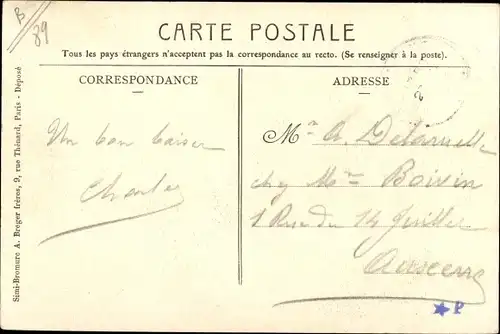 B
89
CARTE POSTALE
Tous les pays étrangers n'acceptent pas la correspondance au recto. (Se renseigner à la poste).
CORRESPONDANCE
ADRESSE
Un bon baiser
Charles
Mr A. Delaruelle
chez Mme Boivin
1 Rue du 14 Juillet
Auxerre
P
Simi-Bromure A. Breger frères, 9, rue Thénard, Paris - Déposé